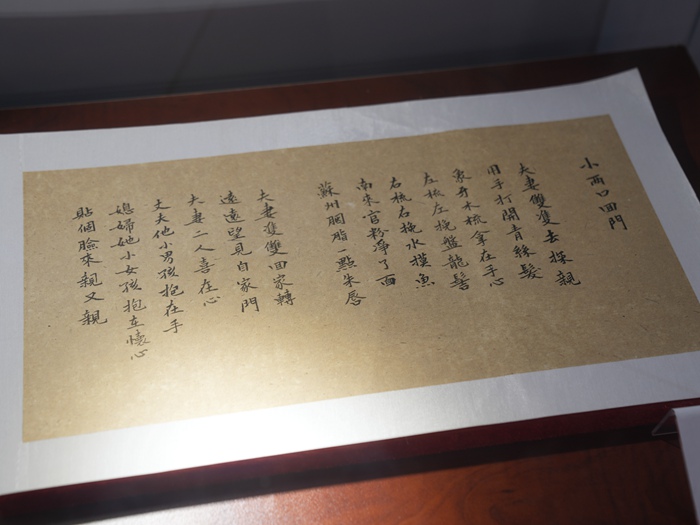 小両口囬門
夫妻雙雙去探親
用手打開青絲髮
象牙木梳拿在手心
左梳左挽盤龍髻
右梳右挽水摸魚
南來官粉淨了面
蘇州胭脂一點朱唇
夫妻雙雙回家轉
遠遠望見自家門
夫妻二人喜在心
丈夫他小男孩抱在手
媳婦她小女孩抱在懷心
貼個臉來親又親